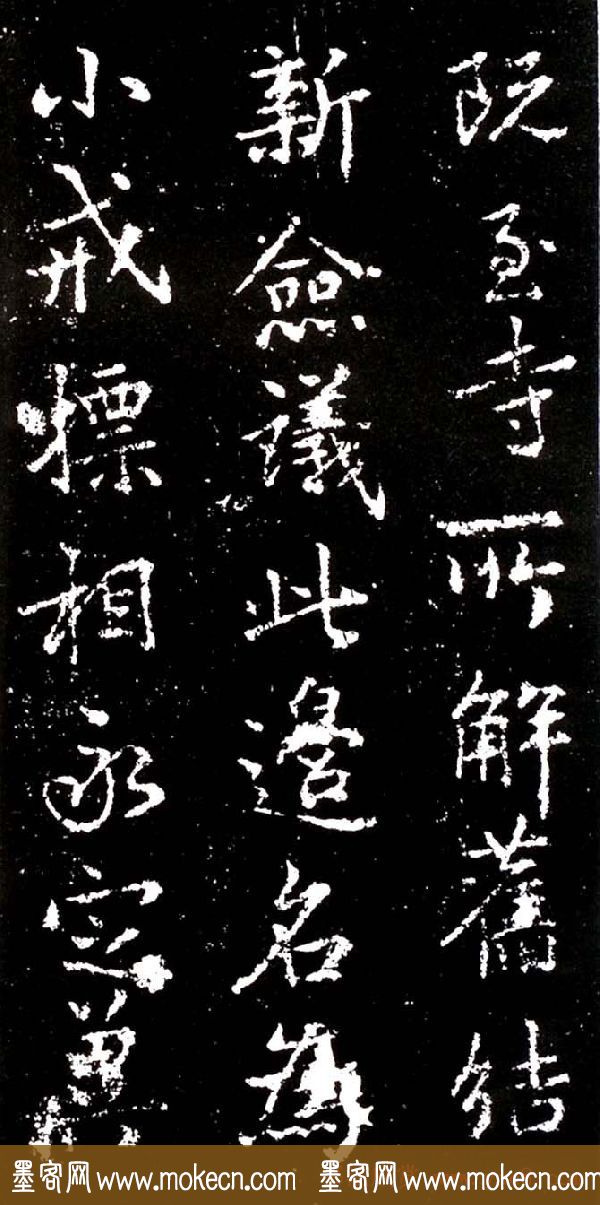 既至寺所解舊結
新僉議此邊名為
小戒標相永定
墨客网 www.mokecn.com 墨客网 www.mokecn.com